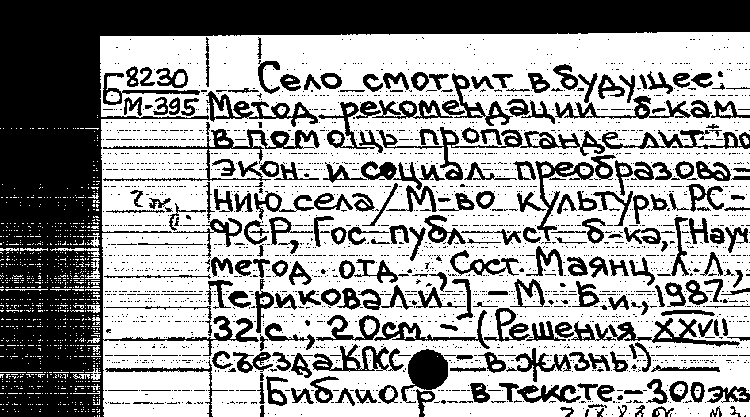 Б 8230
М-395
Село смотрит в будущее:
Метод. рекомендации б-кам
в помощь пропаганде лит. по
экон. и социал. преобразова=
2 экз.
нию села / М-во культуры РС-
ФСР, Гос. публ. ист. б-ка, [Науч
метод. отд.; Сост. Маянц Л.Л.,
Терикова Л.И.]. – М.: Б.и., 1987 –
32 с.; 20см. – (Решения XXVII
съезда КПСС – в жизнь!)
Библиогр. в тексте. – 300 экз